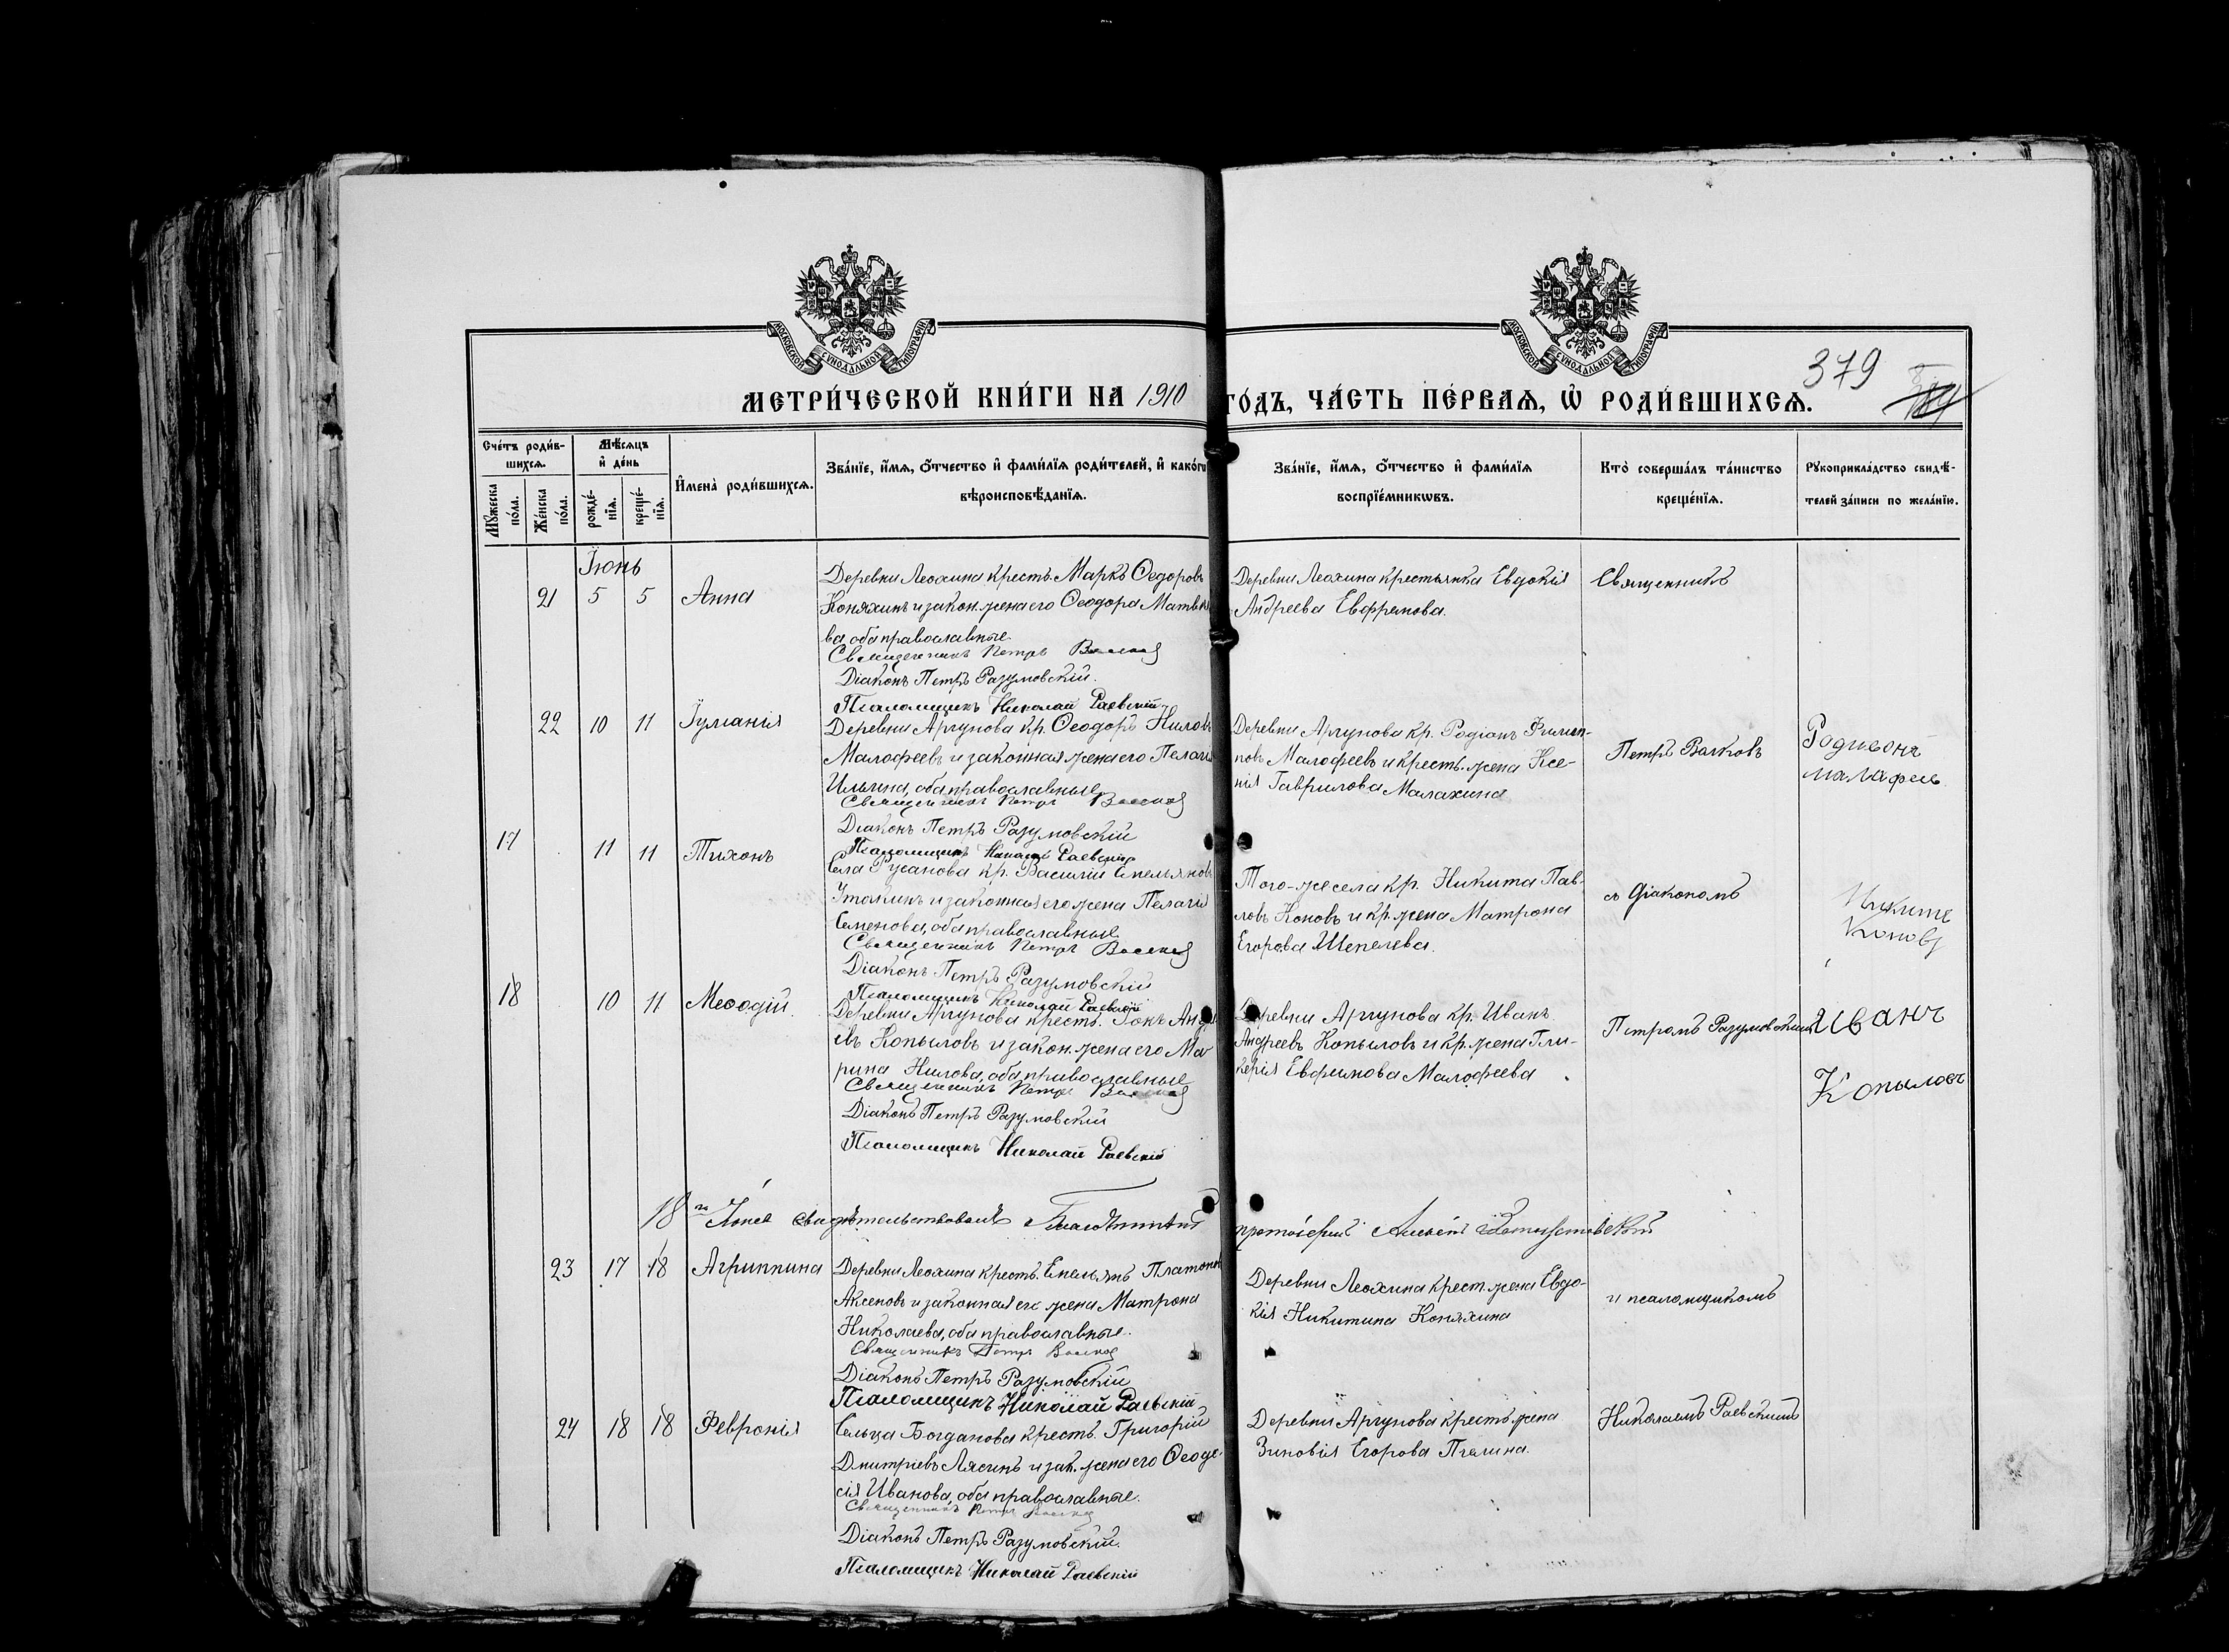 МОСКОВСКОЙ СѴНОДАЛЬНОЙ ТИПОГРАФІИ
МОСКОВСКОЙ СѴНОДАЛЬНОЙ ТИПОГРАФІИ
379
МЕТРИ́ЧЕСКОЙ КНИ́ГИ НА 1910 ГО́ДЪ, ЧА́СТЬ ПЕ́РВАѦ, Ѡ҆ РОДИ́ВШИХСѦ.
Сче́тъ роди́в-
шихсѧ.
Мꙋ́жеска по́ла.
Же́нска по́ла.
Мѣ́сѧцъ
и҆ де́нь
рожде́-
нїѧ.
креще́-
нїѧ.
И҆мена̀ роди́вшихсѧ.
Зва́нїе, и҆́мѧ, ѻ҆́тчество и҆ фами́лїѧ роди́телей, и҆ како́гѡ
вѣроисповѣ́данїѧ.
Зва́нїе, и҆́мѧ, ѻ҆́тчество и҆ фами́лїѧ
воспрїе́мникѡвъ.
Кто̀ соверша́лъ та́инство
креще́нїѧ.
Рꙋкоприкла́дство свидѣ́-
телей за́писи по жела́нїю.
Іюнь
21 5 5 Анна
Деревни Леохина крестъ. Маркъ Ѳедоровъ
Коняхинъ и закон. жена его Ѳеодора Матвѣе
ва, оба православные
Священникъ Петръ
Діаконъ Петръ Разумовскій.
Псаломщикъ Николай Раевскій
Деревни Леохина крестьянка Евдокія
Андреева Евфремова.
Священникъ
22 10 11 Іуліанія
Деревни Аргунова кр. Ѳеодоръ Ниловъ
Малофеевъ и законная жена его Пелагія
Ильина, оба православные
Священникъ Петръ
Діаконъ Петръ Разумовскій
Псаломщикъ Николай Раевскій
Деревни Аргунова кр. Родіонъ Филип-
повъ Малофеевъ и крестъ. жена Ксе-
нія Гаврилова Малахина
Петръ Волковъ
Родивонъ
малафеев
17 11 11 Тихонъ
Села Русанова кр. Василій Емельяновъ
Утакинъ и законная его жена Пелагія
Семенова, оба православные
Священникъ Петръ
Діаконъ Петръ Разумовскій
Псаломщикъ Николай Раевскій
Того-же села кр. Никита Пав-
ловъ Коновъ и кр. жена Матрона
Егорова Шепелева.
съ діакономъ
Никита
Коновъ
18 10 11 Меѳодій.
Деревни Аргунова крестъ. Іонъ Андре
евъ Копыловъ и закон. жена его Ма-
рина Нилова, оба православные
Священникъ Петръ
Діаконъ Петръ Разумовскій
Псаломщикъ Николай Раевскій
Деревни Аргунова кр. Иванъ
Андреевъ Копыловъ и кр. жена Гли-
керія Евфимова Малофеева
Петромъ Разумовскимъ
Иванъ
Копылов
18 го Іюня свидѣтельствовалъ Благочинный протоіерей
23 17 18 Агриппина
Деревни Леохина крестъ. Емельянъ Платоновъ
Аксеновъ и законная его жена Матрона
Николаева, оба православные.
Священникъ Петръ
Діаконъ Петръ Разумовскій
Псаломщикъ Николай Раевскій
Деревни Леохина крест. жена Евдо-
кія Никитина Коняхина
и псаломщикомъ
24 18 18 Февронія
Сельца Богданова крестъ. Григорій
Дмитріевъ Лясинъ и зак. жена его Ѳеодо-
сія Иванова, оба православные.
Священникъ Петръ
Діаконъ Петръ Разумовскій.
Псаломщикъ Николай Раевскій
Деревни Аргунова крестъ. жена
Зиновія Егорова Пчелина.
Николаемъ Раевскимъ